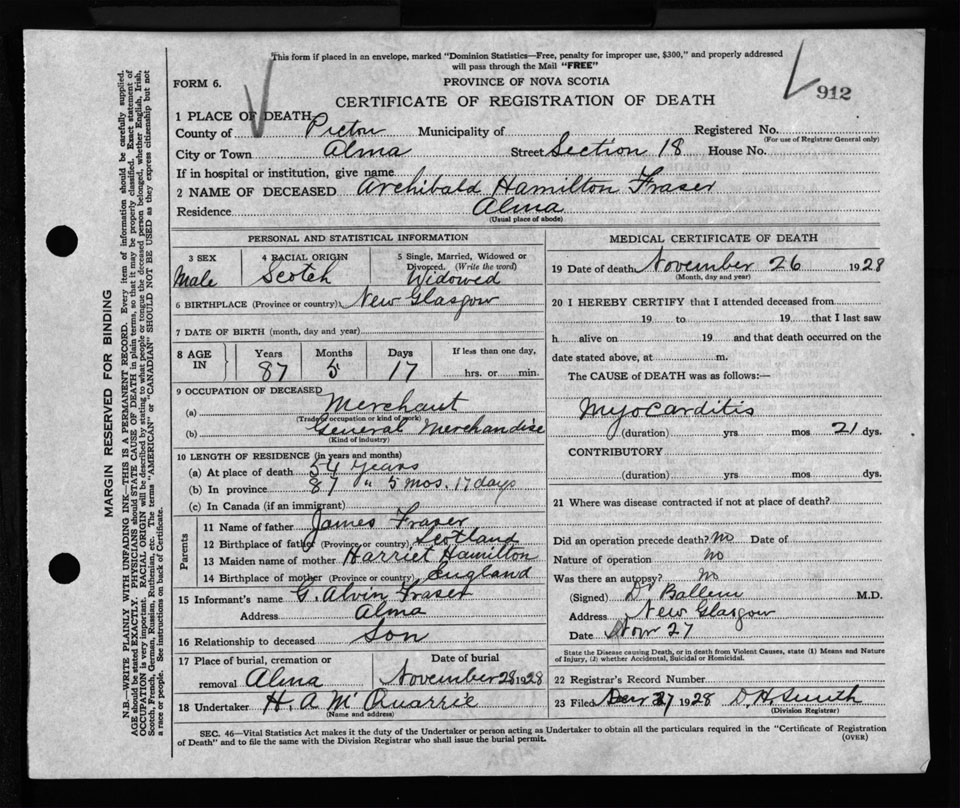 This form if placed in an envelope, marked "Dominion Statistics—Free, penalty for improper use, $300," and properly addressed
will pass through the Mail "FREE"
FORM 6.
PROVINCE OF NOVA SCOTIA
912
CERTIFICATE OF REGISTRATION OF DEATH
1 PLACE OF DEATH
County of Pictou Municipality of Registered No.
(For use of Registrar General only)
City or Town Alma Street Section 18 House No.
If in hospital or institution, give name
2 NAME OF DECEASED Archibald Hamilton Fraser
Residence Alma
(Usual place of abode)
PERSONAL AND STATISTICAL INFORMATION
3 SEX 4 RACIAL ORIGIN 5 Single, Married, Widowed or
Divorced. (Write the word)
Male Scotch Widowed
6 BIRTHPLACE (Province or country) New Glasgow
7 DATE OF BIRTH (month, day and year)
8 AGE IN Years Months Days If less than one day,
87 5 17 hrs. or min.
9 OCCUPATION OF DECEASED
(a) Merchant
(Trade, occupation or kind of work)
(b) General Merchandise
(Kind of industry)
10 LENGTH OF RESIDENCE (in years and months)
(a) At place of death 54 years
(b) In province 87 " 5 mos. 17 days
(c) In Canada (if an immigrant)
Parents
11 Name of father James Fraser
12 Birthplace of father (Province or country) Scotland
13 Maiden name of mother Harriet Hamilton
14 Birthplace of mother (Province or country) England
15 Informant's name G. Alvin Fraser
Address Alma
16 Relationship to deceased Son
17 Place of burial, cremation or Date of burial
removal Alma November 28 1928
18 Undertaker H. A. McQuarrie
(Name and address)
MEDICAL CERTIFICATE OF DEATH
19 Date of death November 26 1928
(Month, day and year)
20 I HEREBY CERTIFY that I attended deceased from
19 to 19 that I last saw
h alive on 19 and that death occurred on the
date stated above, at m.
The CAUSE of DEATH was as follows:—
Myocarditis
(duration) yrs mos 21 dys.
CONTRIBUTORY
(duration) yrs mos dys.
21 Where was disease contracted if not at place of death?
Did an operation precede death? No Date of
Nature of operation No
Was there an autopsy? No
(Signed) Dr Ballem M.D.
Address New Glasgow
Date Nov 27
State the Disease causing Death, or in death from Violent Causes, state (1) Means and Nature
of Injury, (2) whether Accidental, Suicidal or Homicidal.
22 Registrar's Record Number
23 Filed 1928 D. H. Smith
(Division Registrar)
SEC. 46—Vital Statistics Act makes it the duty of the Undertaker or person acting as Undertaker to obtain all the particulars required in the "Certificate of Registration
of Death" and to file the same with the Division Registrar who shall issue the burial permit.
(OVER)
MARGIN RESERVED FOR BINDING
N.B.—WRITE PLAINLY WITH UNFADING INK—THIS IS A PERMANENT RECORD. Every item of information should be carefully supplied.
AGE should be stated EXACTLY. PHYSICIANS should STATE CAUSE OF DEATH in plain terms, so that it may be properly classified. Exact statement of
OCCUPATION is very important. RACIAL ORIGIN will be described by stating to what people or tongue the deceased person belonged, whether English, Irish,
Scotch, French, German, Russian, Ruthenian, etc. The terms "AMERICAN" or "CANADIAN" SHOULD NOT BE USED as they express citizenship but not
a race or people. See instructions on back of Certificate.